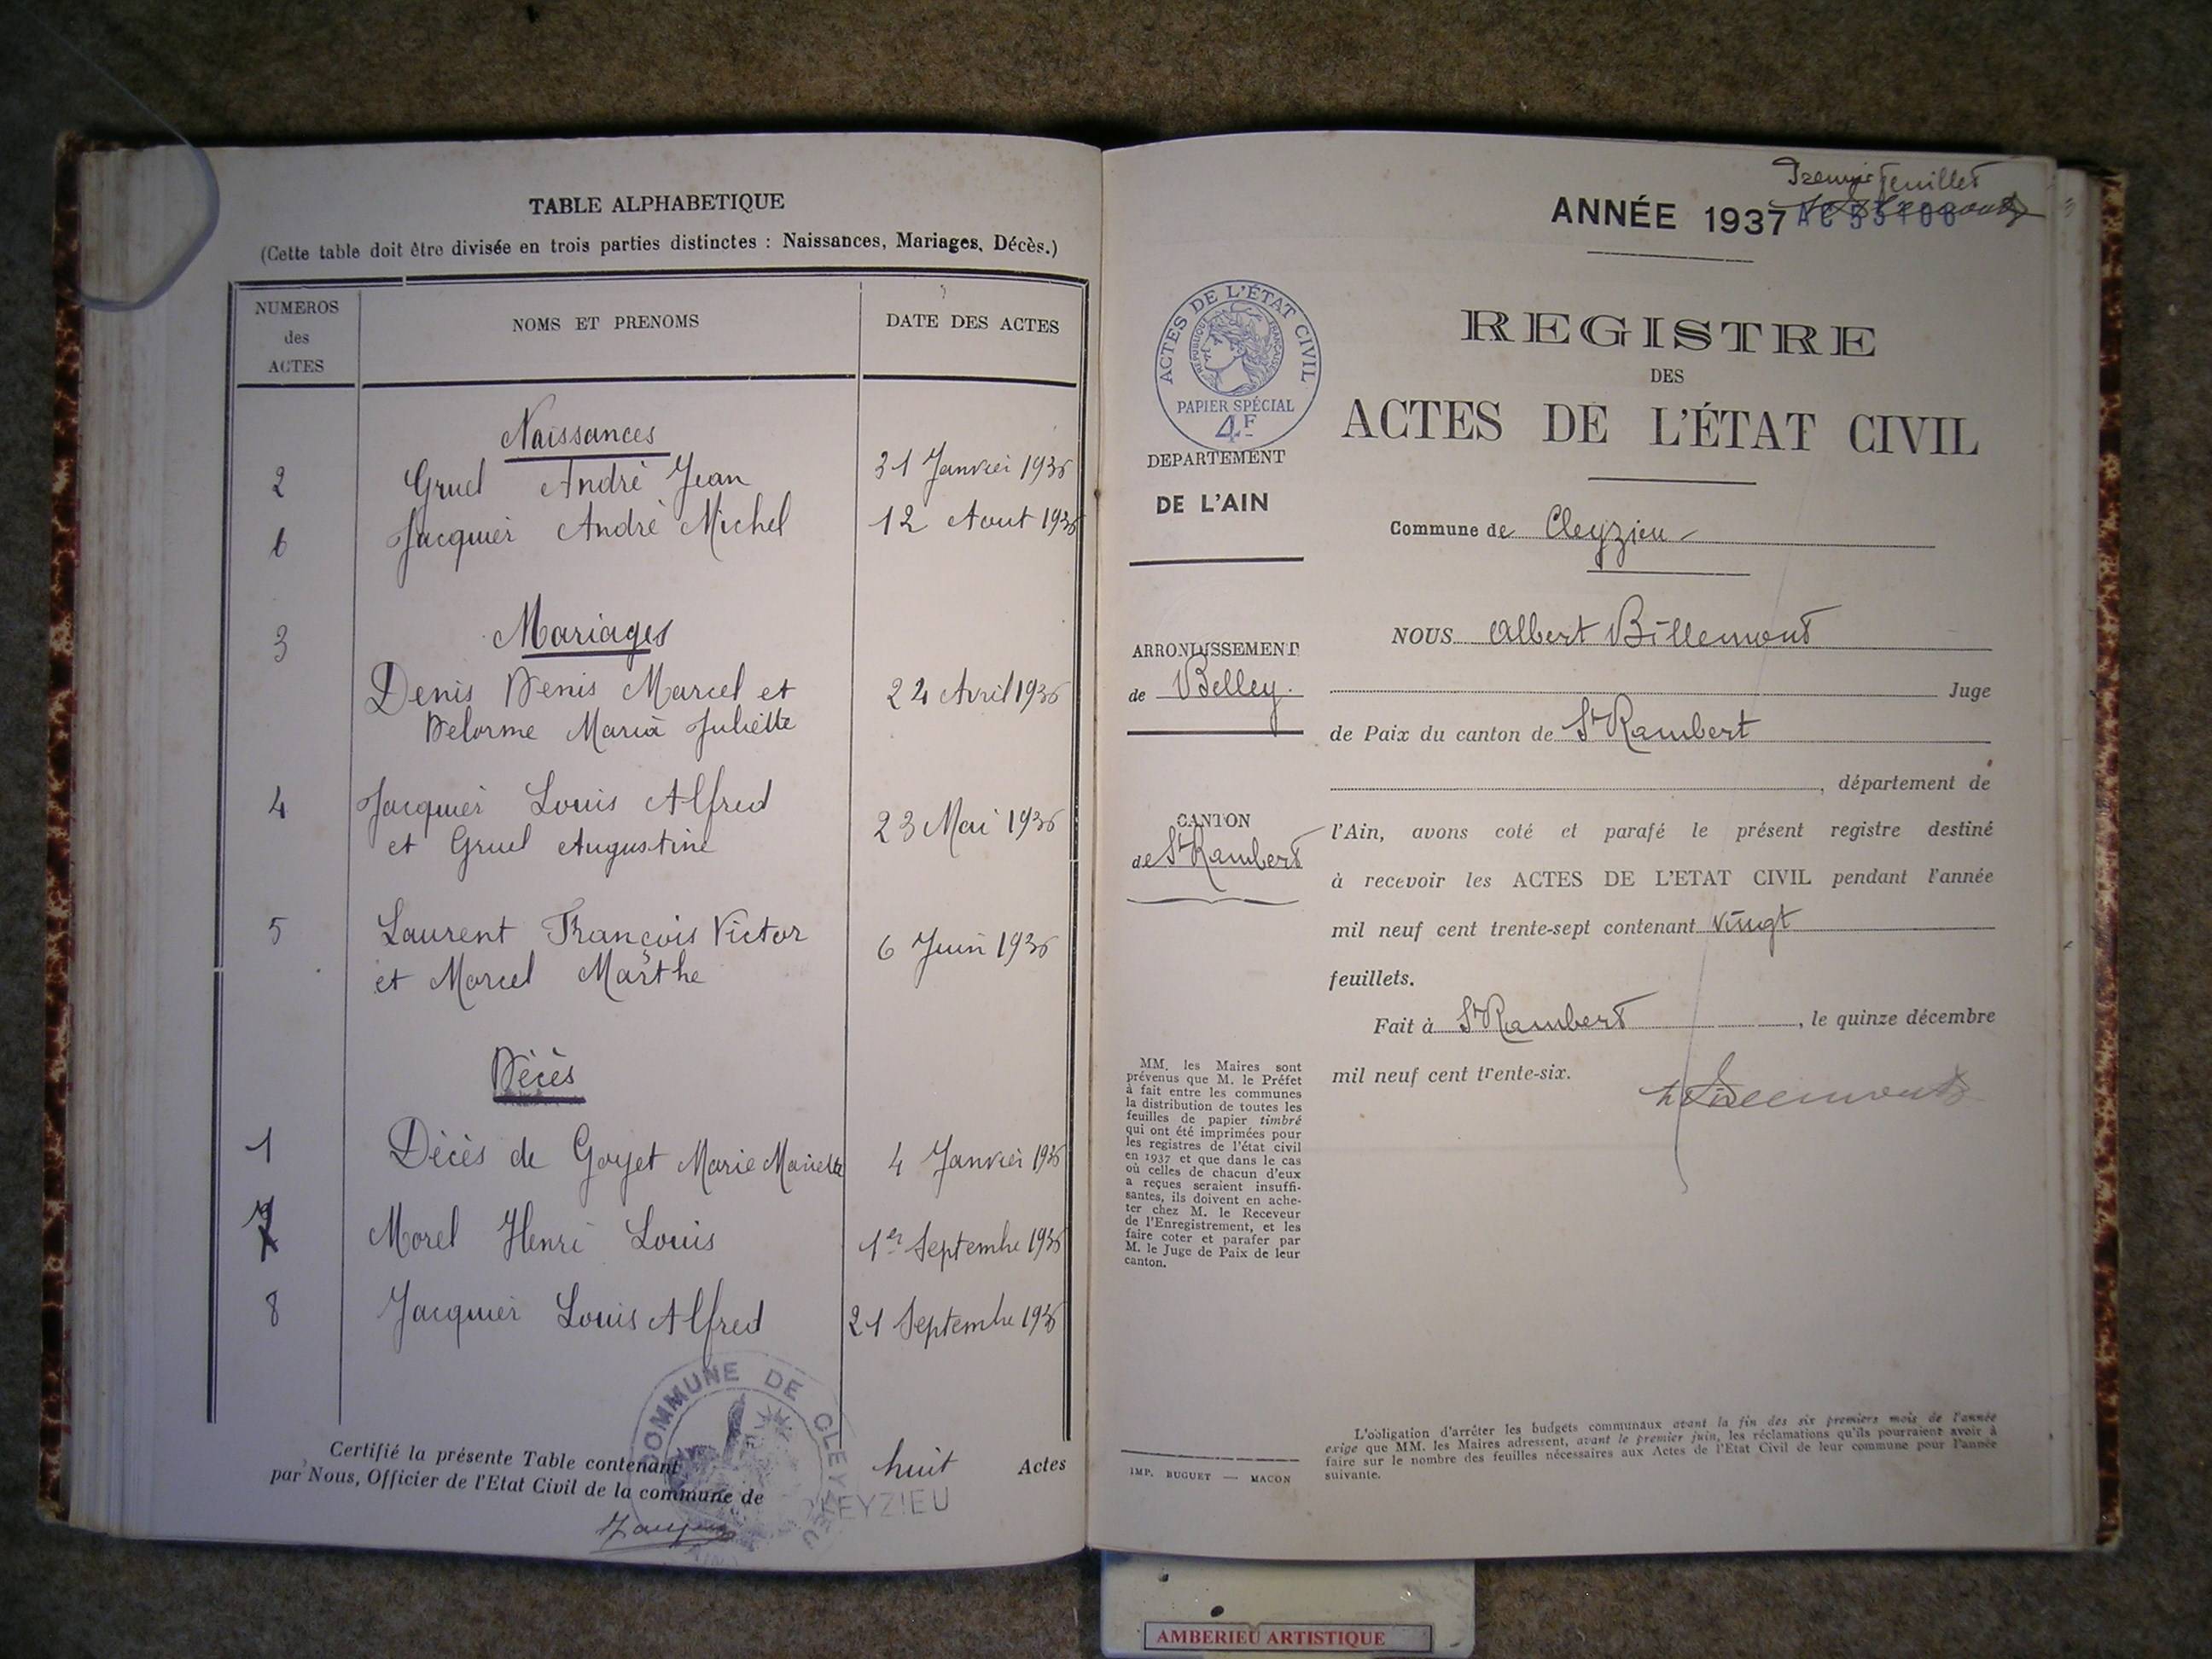 TABLE ALPHABETIQUE
(Cette table doit être divisée en trois parties distinctes : Naissances, Mariages, Décès.)
NUMEROS
des
ACTES
NOMS ET PRENOMS
DATE DES ACTES
Naissances
2 Gruel André Jean 31 Janvier 1936
6 Jacquier André Michel 12 Aout 1936
3 Mariages
Denis Denis Marcel et 24 Avril 1936
Delorme Maria Juliette
4 Jacquier Louis Alfred
et Gruel Augustine 23 Mai 1936
5 Laurent François Victor
et Marcel Marthe 6 Juin 1936
Décès
1 Décès de Goyet Marie Mariette 4 Janvier 1936
7 Morel Henri Louis 1er Septembre 1936
8 Jacquier Louis Alfred 21 Septembre 1936
Certifié la présente Table contenant huit Actes
par Nous, Officier de l'Etat Civil de la commune de CLEYZIEU
COMMUNE DE CLEYZIEU
Premier feuillet
ANNÉE 1937
REGISTRE
DES
ACTES DE L'ÉTAT CIVIL
ACTES DE L'ÉTAT CIVIL
RÉPUBLIQUE FRANÇAISE
PAPIER SPÉCIAL
4F
DEPARTEMENT
DE L'AIN
Commune de Cleyzieu
ARRONDISSEMENT
de Belley.
CANTON
de St Rambert
NOUS Albert Billemont
Juge
de Paix du canton de St Rambert
, département de
l'Ain, avons coté et parafé le présent registre destiné
à recevoir les ACTES DE L'ETAT CIVIL pendant l'année
mil neuf cent trente-sept contenant vingt
feuillets.
Fait à St Rambert, le quinze décembre
mil neuf cent trente-six.
MM. les Maires sont
prévenus que M. le Préfet
à fait entre les communes
la distribution de toutes les
feuilles de papier timbré
qui ont été imprimées pour
les registres de l'état civil
en 1937 et que dans le cas
où celles de chacun d'eux
a reçues seraient insuffi-
santes, ils doivent en ache-
ter chez M. le Receveur
de l'Enregistrement, et les
faire coter et parafer par
M. le Juge de Paix de leur
canton.
IMP. BUGUET — MACON
L'obligation d'arrêter les budgets communaux avant la fin des six premiers mois de l'année
exige que MM. les Maires adressent, avant le premier juin, les réclamations qu'ils pourraient avoir à
faire sur le nombre des feuilles nécessaires aux Actes de l'Etat Civil de leur commune pour l'année
suivante.
AMBERIEU ARTISTIQUE